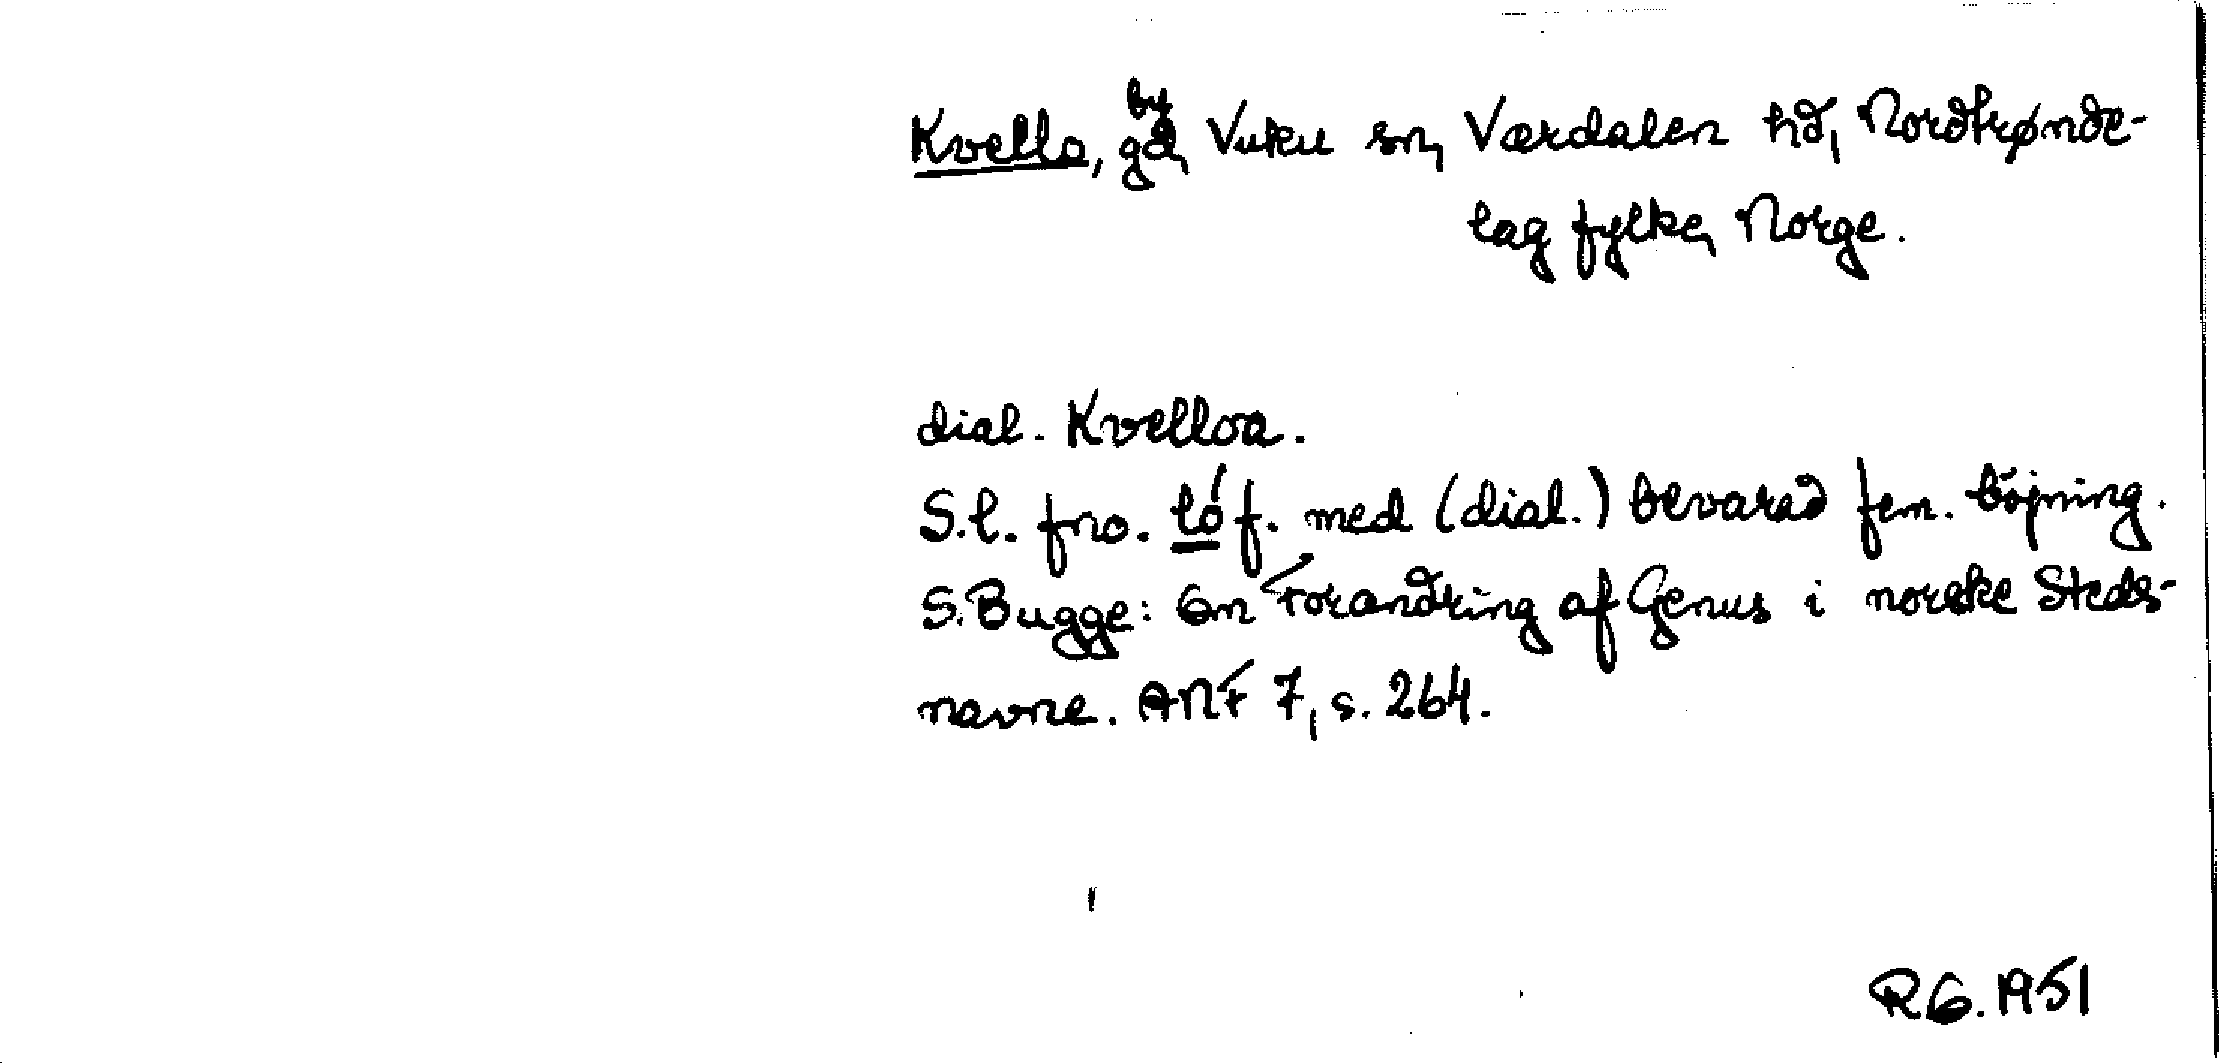 Kvello, by gd, Vuku sn, Værdalen hd, Nordtrønde-
lag fylke, Norge.
dial. Kvelloa.
S.l. fno. ló f. med (dial.) bevarad fem. böjning.
S. Bugge: Om Forandring af Genus i norske Steds-
navne. ANF 7, s. 264.
RG. 1951